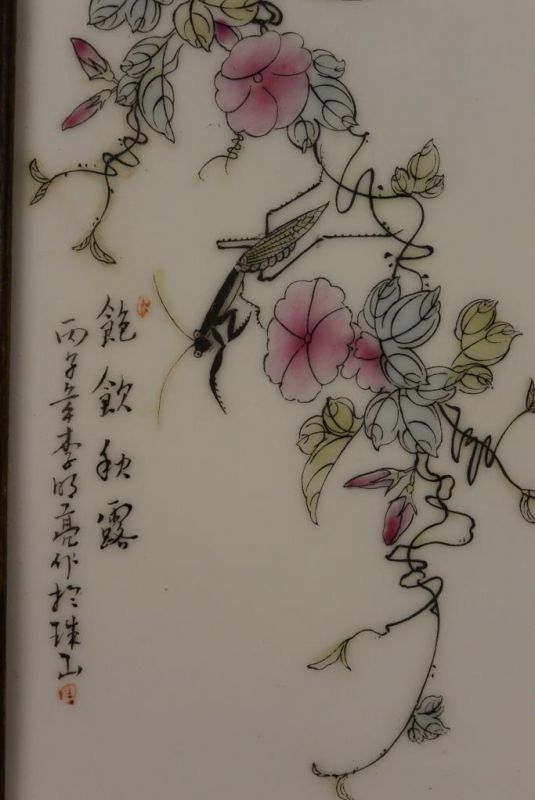 飽飲秋露
丙子年李明亮作於珠山